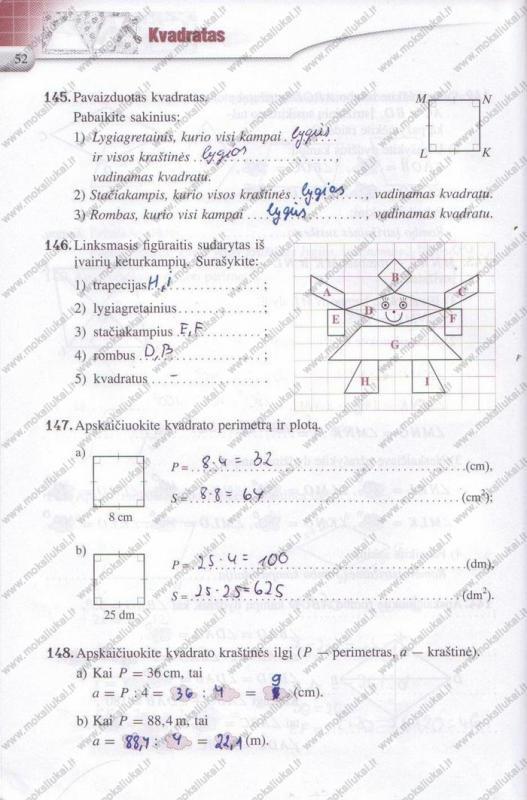 Kvadratas
52
145. Pavaizduotas kvadratas.
Pabaikite sakinius:
1) Lygiagretainis, kurio visi kampai . lygūs
ir visos kraštinės . lygios . . . . . . . . . . . . ,
vadinamas kvadratu.
2) Stačiakampis, kurio visos kraštinės . lygios . . . . , vadinamas kvadratu.
3) Rombas, kurio visi kampai . . . lygūs . . . . . . . . . , vadinamas kvadratu.
M N
L K
146. Linksmasis figūraitis sudarytas iš
įvairių keturkampių. Surašykite:
1) trapecijas H, i . . . . . . . . . . . . ;
2) lygiagretainius . . . . . . . . . . . . ;
3) stačiakampius E, F . . . . . . . ;
4) rombus . D, B . . . . . . . . . . . ;
5) kvadratus . . . – . . . . . . . . . . .
B
A C
D
E F
G
H I
147. Apskaičiuokite kvadrato perimetrą ir plotą.
a)
8 cm
P = . . . 8 . 4 = 32 . . . . . . . . . . . . (cm),
S = . . . 8 . 8 = 64 . . . . . . . . . . . . (cm²);
b)
25 dm
P = . . 25 . 4 = 100 . . . . . . . . . . . . (dm),
S = . . . 25 . 25 = 625 . . . . . . . . . . . . (dm²).
148. Apskaičiuokite kvadrato kraštinės ilgį (P – perimetras, a – kraštinė).
a) Kai P = 36 cm, tai
a = P : 4 = 36 : 4 = 9 (cm).
b) Kai P = 88,4 m, tai
a = 88,4 : 4 = 22,1 (m).
www.mokausliukai.lt